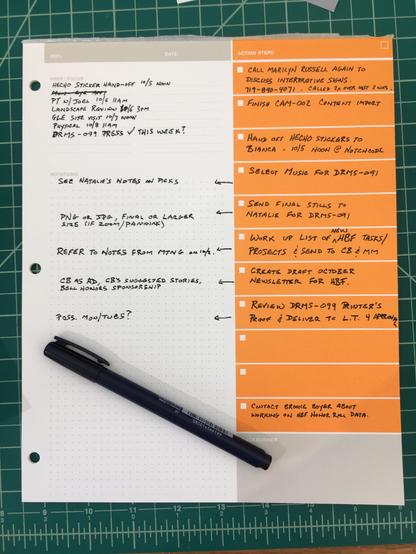 DATE:
PREP / FOCUS
HECHO STICKER HAND-OFF 10/5 NOON
PT W/JOEL 10/6 11AM
LANDSCAPE REVIEW 10/6 3PM
SITE VISIT 10/7 NOON
PHYSICAL 10/8 11AM
DRMS-099 PRESS ✓ THIS WEEK?
NOTATIONS
SEE NATALIE'S NOTES ON PICKS ←
PNG OR JPG, FINAL OR LARGER ←
SIZE (IF ZOOM/PANNING)
REFER TO NOTES FROM MTNG ON 10/2. ←
CB AS AD, CB'S SUGGESTED STORIES, ←
BELL HONORS SPONSORSHIP
POSS. MON/TUES? ←
ACTION STEPS
CALL MARILYN RUSSELL AGAIN TO
DISCUSS INTERPRETIVE SIGNS.
FINISH CAM-002 CONTENT IMPORT
HAND OFF HECHO STICKERS TO
BIANCA - 10/5 NOON @ NOTCHCODE
SELECT MUSIC FOR DRMS-091
SEND FINAL STILLS TO
NATALIE FOR DRMS-091
WORK UP LIST OF NEW HBF TASKS/
PROJECTS & SEND TO CB & MM
CREATE DRAFT OCTOBER
NEWSLETTER FOR HBF.
REVIEW DRMS-099 PRINTER'S
PROOF & DELIVER TO L.T. 4 APPROVAL
CONTACT BROOKE BOYER ABOUT
WORKING ON HBF HONOR ROLL DATA.
BACKBURNER